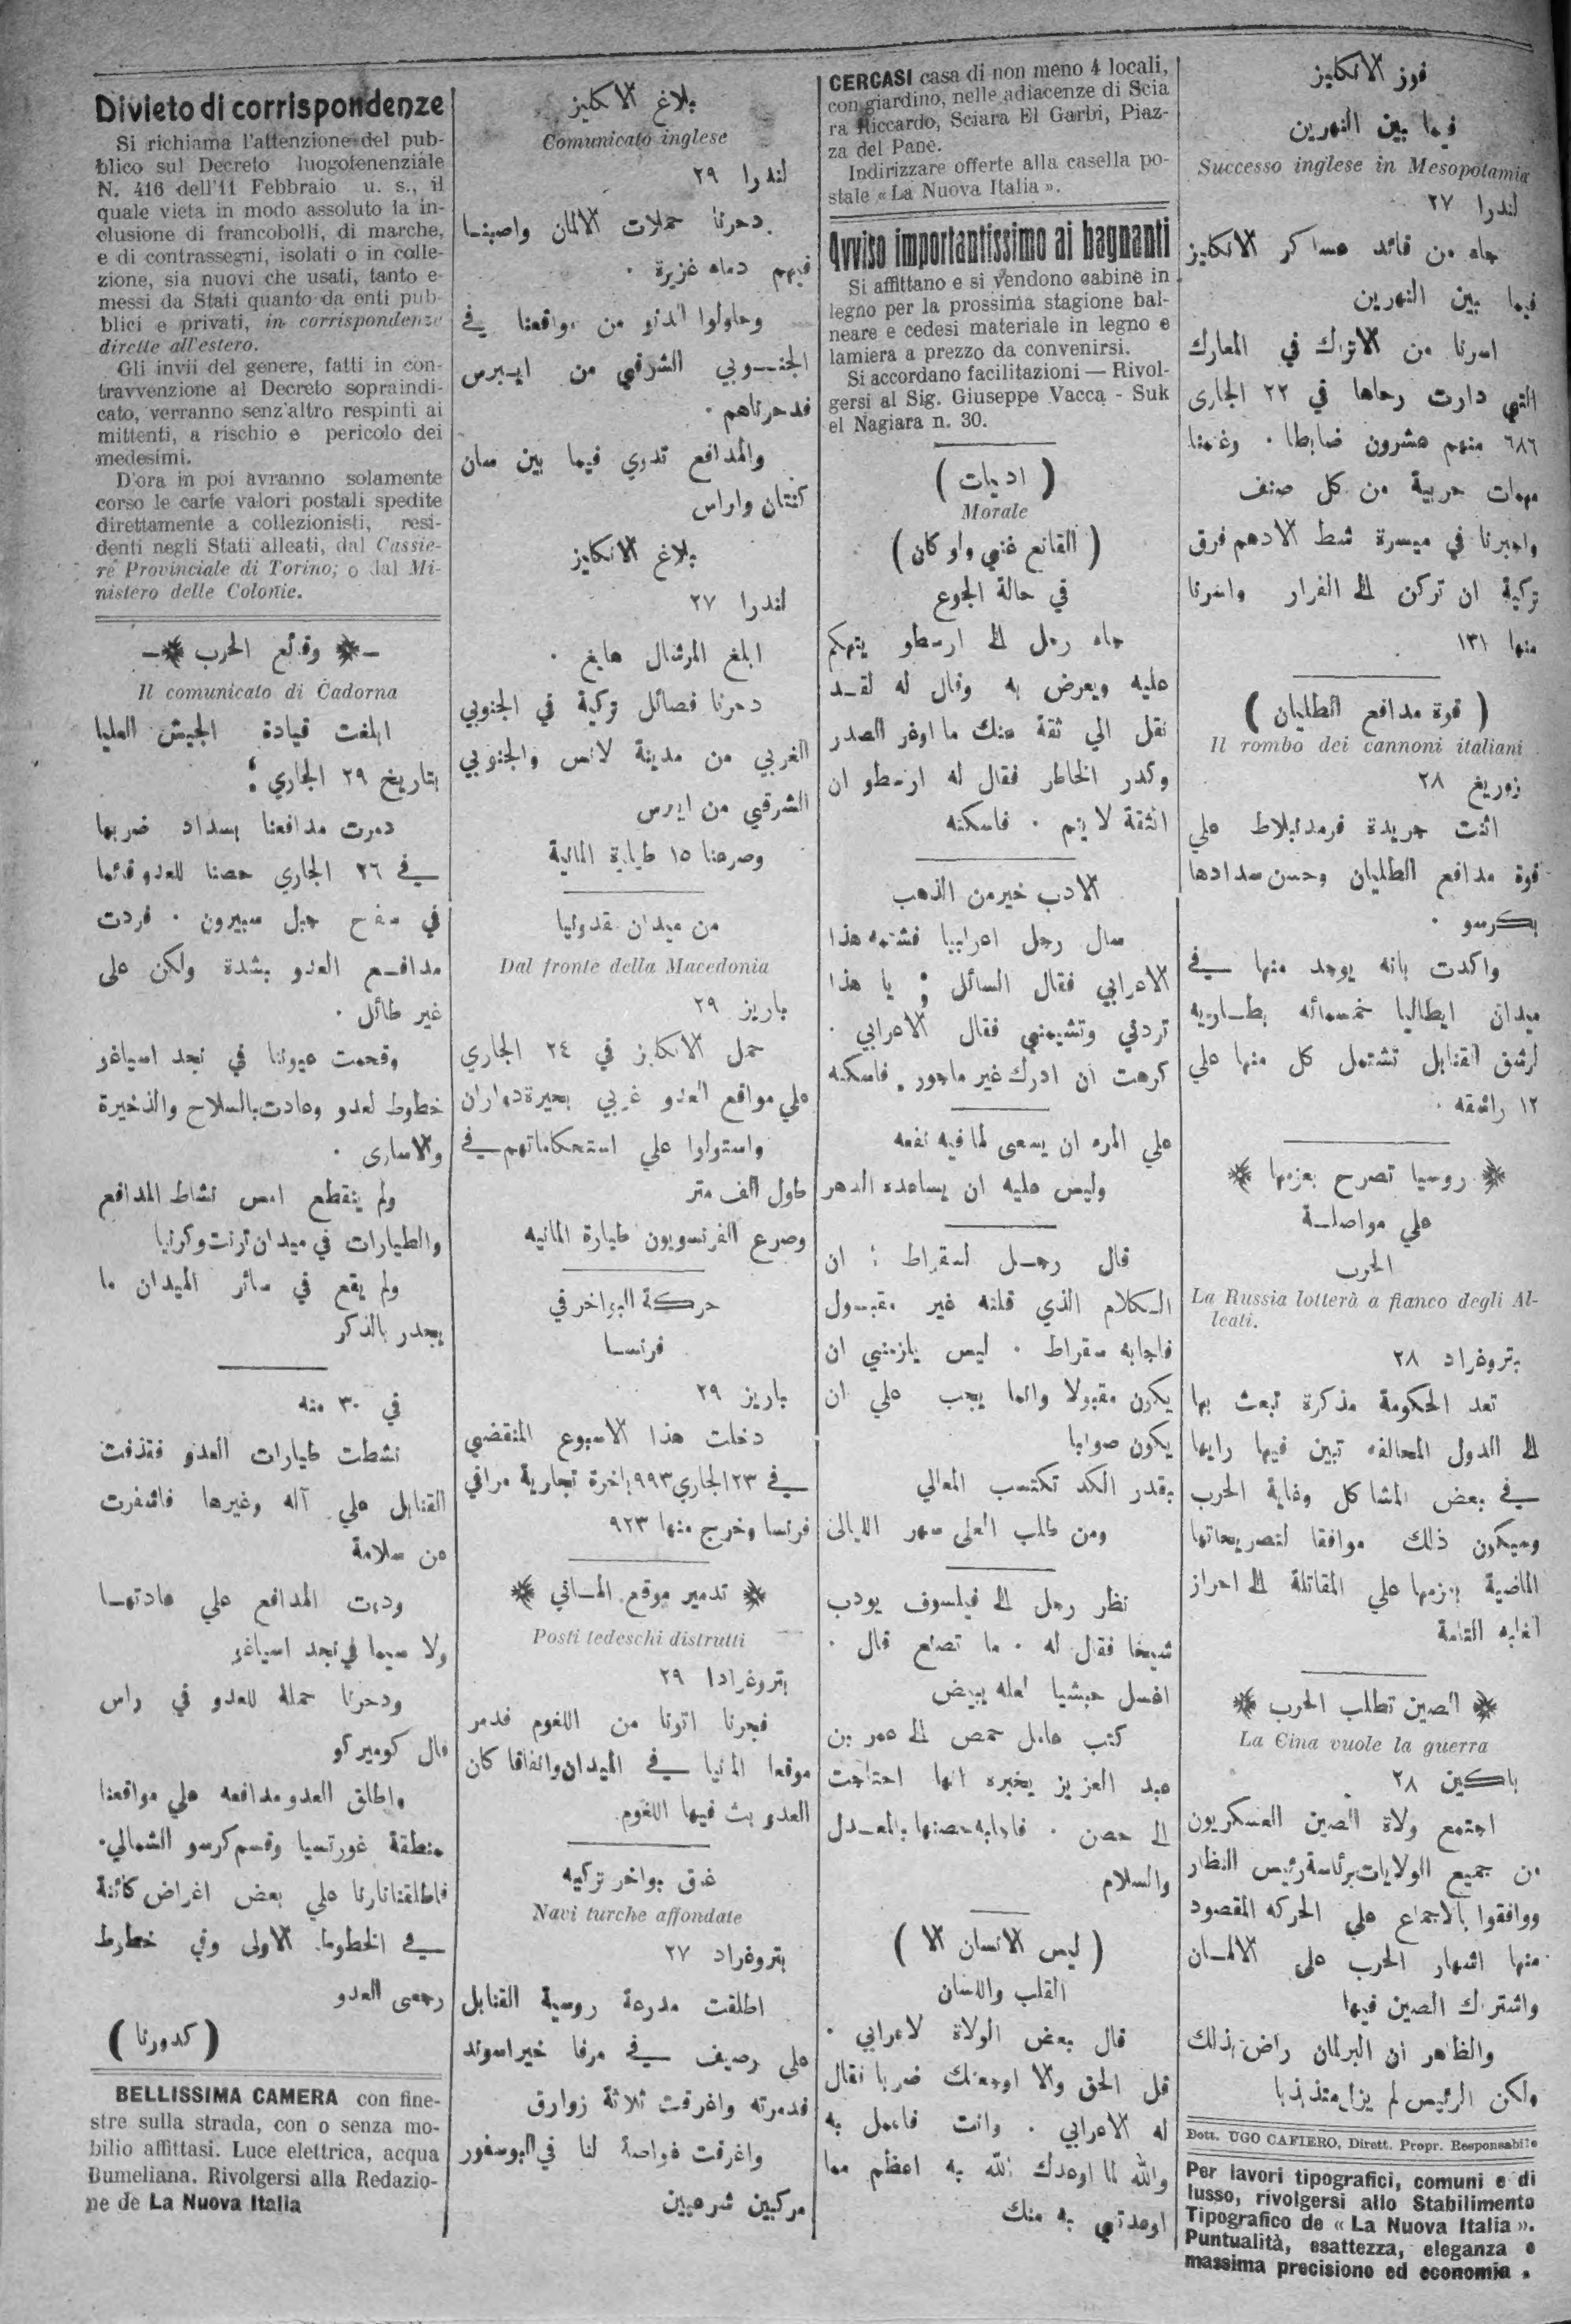 Divieto di corrispondenze
Si richiama l'attenzione del pub-
blico sul Decreto luogotenenziale
N. 416 dell'11 Febbraio u. s., il
quale vieta in modo assoluto la in-
clusione di francobolli, di marche,
e di contrassegni, isolati o in colle-
zione, sia nuovi che usati, tanto e-
messi da Stati quanto da enti pub-
blici e privati, in corrispondenze
dirette all'estero.
Gli invii del genere, fatti in con-
travvenzione al Decreto sopraindi-
cato, verranno senz'altro respinti ai
mittenti, a rischio e pericolo dei
medesimi.
D'ora in poi avranno solamente
corso le carte valori postali spedite
direttamente a collezionisti, resi-
denti negli Stati alleati, dal Cassie-
re Provinciale di Torino; o dal Mi-
nistero delle Colonie.
وقائع الحرب
Il comunicato di Cadorna
ابلغت قيادة الجيش العليا
بتاريخ ٢٩ الجاري :
دمرت مدافعنا بسداد ضربها
في ٢٦ الجاري حصنا للعدو قائما
في سفح جبل سبيرون . فردت
مدافع العدو بشدة ولكن على
غير طائل .
وقحمت عيوننا في نجد اسياغو
خطوط لعدو وعادت بالسلاح والذخيرة
والاسارى .
ولم ينقطع امس نشاط المدافع
والطيارات في ميدان ترنت وكرنيا
ولم يقع في سائر الميدان ما
يجدر بالذكر
في ٣٠ منه
نشطت طيارات العدو فقذفت
القنابل علي آله وغيرها فاسفرت
عن سلامة
ودمت المدافع علي عادتها
ولا سيما في نجد اسياغو
ودحرنا حملة للعدو في راس
فال كوميركو
واطلق العدو مدافعه علي مواقعنا
منطقة غورتسيا وقسم كرسو الشمالي.
فاطلقنا نارنا علي بعض اغراض كائنة
في الخطوط الاولى وفي خطوط
رجعى العدو
( كدورنا )
BELLISSIMA CAMERA con fine-
stre sulla strada, con o senza mo-
bilio affittasi. Luce elettrica, acqua
Bumeliana. Rivolgersi alla Redazio-
ne de La Nuova Italia
بلاغ الانكليز
Comunicato inglese
لندرا ٢٩
دحرنا حملات الالمان واصبنا
فيهم دماء غزيرة .
وحاولوا الدنو من مواقعنا في
الجنوبي الشرقي من ايبرس
فدحرناهم .
والمدافع تدوي فيما بين سان
كنتان واراس
بلاغ الانكليز
لندرا ٢٧
ابلغ المرشال هايغ .
دحرنا فصائل تركية في الجنوبي
الغربي من مدينة لانس والجنوبي
الشرقي من ايبرس
وصرعنا ١٥ طيارة المانية
من ميدان مقدونيا
Dal fronte della Macedonia
باريز ٢٩
حمل الانكليز في ٢٤ الجاري
علي مواقع العدو غربي بحيرة دواران
واستولوا علي استحكاماتهم في
طول الف متر
وصرع الفرنسويون طيارة المانيه
حركة البواخر في
فرنسا
باريز ٢٩
دخلت هذا الاسبوع المنقضي
في ٢٣ الجاري ٩٩٣ باخرة تجارية مرافي
فرنسا وخرج منها ٩٢٣
تدمير موقع الماني
Posti tedeschi distrutti
بتروغرادا ٢٩
فجرنا اتونا من اللغوم فدمر
موقعا المانيا في الميدان واتفاقا كان
العدو بث فيها اللغوم.
غرق بواخر تركيه
Navi turche affondate
بتروغراد ٢٧
اطلقت مدرعة روسية القنابل
علي رصيف في مرفا خيراسوند
فدمرته واغرقت ثلاثة زوارق
واغرقت غواصة لنا في البوسفور
مركبين شرعيين
CERCASI casa di non meno 4 locali,
con giardino, nelle adiacenze di Scia
ra Riccardo, Sciara El Garbi, Piaz-
za del Pane.
Indirizzare offerte alla casella po-
stale « La Nuova Italia ».
Avviso importantissimo ai bagnanti
Si affittano e si vendono cabine in
legno per la prossima stagione bal-
neare e cedesi materiale in legno e
lamiera a prezzo da convenirsi.
Si accordano facilitazioni — Rivol-
gersi al Sig. Giuseppe Vacca - Suk
el Nagiara n. 30.
( ادبيات )
Morale
( القانع غني ولو كان )
في حالة الجوع
جاء رجل الى ارسطو يتهكم
عليه ويعرض به وقال له لقد
نقل الي ثقة عنك ما اوغر الصدر
وكدر الخاطر فقال له ارسطو ان
الثقة لا ينم . فاسكته
الادب خير من الذهب
سال رجل اعرابيا فشتمه هذا
الاعرابي فقال السائل ; يا هذا
تردني وتشتمني فقال الاعرابي .
كرهت ان ادرك غير ماجور . فاسكته
علي المرء ان يسعى لما فيه نفعه
وليس عليه ان يساعده الدهر
قال رجل لسقراط : ان
الكلام الذي قلته غير مقبول
فاجابه سقراط . ليس يلزمني ان
يكون مقبولا وانما يجب علي ان
يكون صوابا
بقدر الكد تكتسب المعالي
ومن طلب العلى سهر الليالى
نظر رجل الى فيلسوف يودب
شيخا فقال له . ما تصنع قال .
اغسل حبشيا لعله يبيض
كتب عامل حمص الى عمر بن
عبد العزيز يخبره انها احتاجت
الى حصن . فاجابه حصنها بالعدل
والسلام
( ليس الانسان الا )
القلب واللسان
قال بعض الولاة لاعرابي .
قل الحق والا اوجعتك ضربا فقال
له الاعرابي . وانت فاعمل به
والله لما اوعدك الله به اعظم مما
اوعدتني به منك
فوز الانكليز
فيما بين النهرين
Successo inglese in Mesopotamia
لندرا ٢٧
جاء من قائد عساكر الانكليز
فيما بين النهرين
اسرنا من الاتراك في المعارك
التي دارت رحاها في ٢٢ الجارى
٦٨٦ منهم عشرون ضابطا . وغنمنا
مهمات حربية من كل صنف
واجبرنا في ميسرة شط الادهم فرق
تركية ان تركن الى الفرار واسرنا
منها ١٣١
( قوة مدافع الطليان )
Il rombo dei cannoni italiani
زوريغ ٢٨
اثنت جريدة فرمدنبلاط علي
قوة مدافع الطليان وحسن سدادها
بكرسو .
واكدت بانه يوجد منها في
ميدان ايطاليا خمسمائه بطاريه
لرشق القنابل تشتمل كل منها علي
١٢ راشقه .
روسيا تصرح بعزمها
علي مواصلة
الحرب
La Russia lotterà a fianco degli Al-
leati.
بتروغراد ٢٨
تعد الحكومة مذكرة تبعث بها
الى الدول المحالفه تبين فيها رايها
في بعض المشاكل وغاية الحرب
وسيكون ذلك موافقا لتصريحاتها
الماضية بعزمها علي المقاتلة الى احراز
الغايه التامة
الصين تطلب الحرب
La Cina vuole la guerra
باكين ٢٨
اجتمع ولاة الصين العسكريون
من جميع الولايات برئاسة رئيس النظار
ووافقوا بالاجماع علي الحركه المقصود
منها اشهار الحرب على الالمان
واشتراك الصين فيها
والظاهر ان البرلمان راض بذلك
ولكن الرئيس لم يزل متذبذبا
Dott. UGO CAFIERO, Dirett. Propr. Responsabile
Per lavori tipografici, comuni e di
lusso, rivolgersi allo Stabilimento
Tipografico de « La Nuova Italia ».
Puntualità, esattezza, eleganza e
massima precisione ed economia.